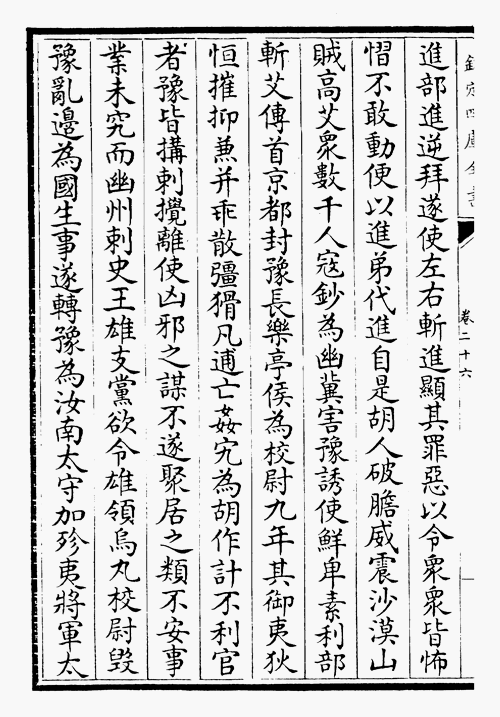 欽定四庫全書
卷二十六
進部進逆拜遂使左右斬進顯其罪惡以令衆衆皆怖
慴不敢動便以進弟代進自是胡人破膽威震沙漠山
賊高艾衆數千人寇鈔為幽冀害豫誘使鮮卑素利部
斬艾傳首京都封豫長樂亭侯為校尉九年其御夷狄
恒摧抑兼并乖散彊猾凡逋亡姦宄為胡作計不利官
者豫皆搆刺攪離使凶邪之謀不遂聚居之類不安事
業未究而幽州刺史王雄支黨欲令雄領烏丸校尉毁
豫亂邊為國生事遂轉豫為汝南太守加殄夷將軍太